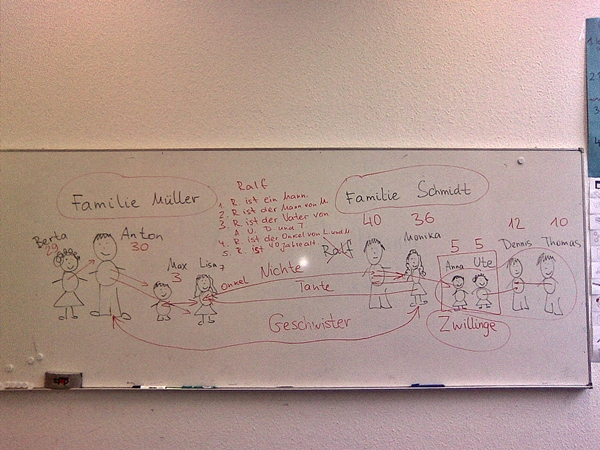 Familie Müller
Ralf
1. R. ist ein Mann.
2. R. ist der Mann von M.
3. R. ist der Vater von
A. U. D. und T.
4. R. ist der Onkel von L. und M.
5. R. ist 40 Jahre alt.
Familie Schmidt
Berta
29
Anton
30
Max
3
Lisa
7
Onkel
Nichte
Tante
Geschwister
Ralf
40
36
Monika
5 5
Anna Ute
Zwillinge
12
Dennis
10
Thomas